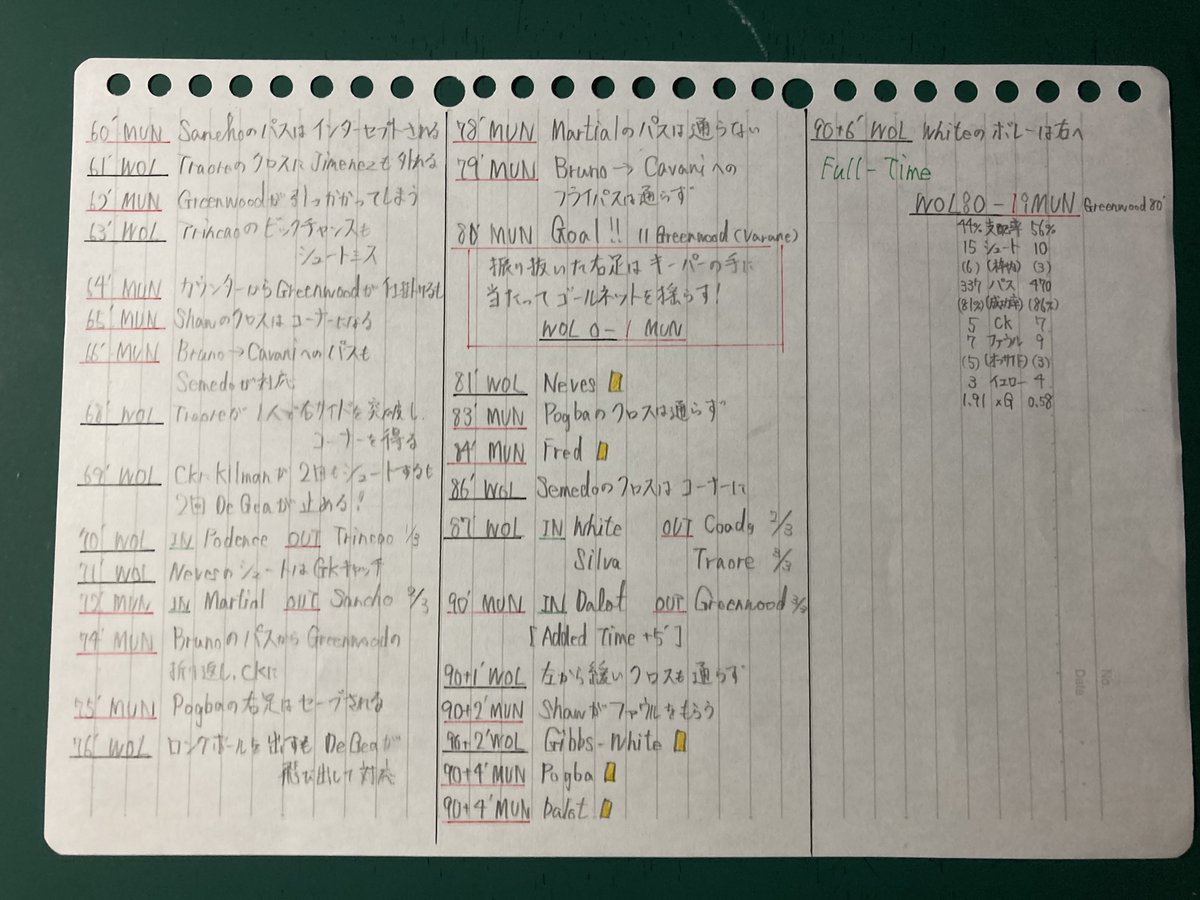 60' MUN Sanchoのパスはインターセプトされる
61' WOL TraoreのクロスにJimenezも外れる
62' MUN Greenwoodが引っかかってしまう
63' WOL Trincaoのビックチャンスも
シュートミス
64' MUN カウンターからGreenwoodが仕掛けるし
65' MUN Shawのクロスはコーナーになる
66' MUN Bruno→Cavaniへのパスも
Semedoが対応
68' WOL Traoreが1人で右サイドを突破し、
コーナーを得る
69' WOL Ckr. Kilmanが2回もシュートするも
2回De Geaが止める!
70' WOL IN Podence OUT Trincao 1/3
71' WOL NevesのシュートはGKキャッチ
72' MUN IN Martial OUT Sancho 2/3
74' MUN BrunoのパスからGreenwoodの
折り返し、CKに
75' MUN Pogbaの右足はセーブされる
76' WOL ロングボールを出すもDe Geaが
飛び出して対応
78' MUN Martialのパスは通らない
79' MUN Bruno→Cavaniへの
フライパスは通らず
80' MUN Goal!! 11 Greenwood (Varane)
振り抜いた右足はキーパーの手に
当たってゴールネットを揺らす!
WOL 0-1 MUN
81' WOL Neves
83' MUN Pogbaのクロスは通らず
84' MUN Fred
86' WOL Semedoのクロスはコーナーに
87' WOL IN White OUT Coady 2/3
Silva Traore 3/3
90' MUN IN Dalot OUT Greenwood 3/3
[Added Time +5']
90+1' WOL 左から緩いクロスも通らず
90+2' MUN Shawがファウルをもらう
90+2' WOL Gibbs-White
90+4' MUN Pogba
90+4' MUN Dalot
90+6' WOL Whiteのボレーは右へ
Full-Time
WOL 80-19 MUN Greenwood 80'
44% 支配率 56%
15 シュート 10
(6) (枠内) (3)
337 パス 470
(81%) (成功率) (86%)
5 CK 7
7 ファウル 9
(5) (オフサイド) (3)
3 イエロー 4
1.91 xG 0.58
No.
Date